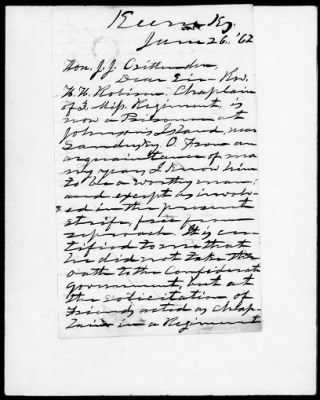 Keene Ky.
June 26, '62
Hon. J. J. Crittenden
Dear Sir - Rev.
H. H. Robison, Chaplain
of 3. Miss Regiment, is
now a Prisoner at
Johnson's Island, near
Sandusky O. From an
acquaintance of ma
ny years, I know him
to be a worthy man;
and except as involv
ed in the present
strife, free from
reproach. It is cer
tified to me that
he did not take the
oath to the Confederate
government, but at
the solicitation of
Friends acted as Chap
lain in a Regiment